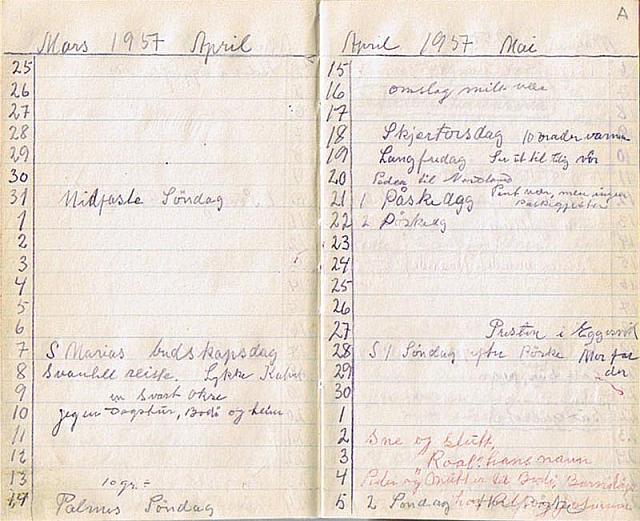 Mars 1957 April
25
26
27
28
29
30
31 Midfaste Söndag
1
2
3
4
5
6
7 S Marias budskapsdag
8 Svanhill reiste. Lykke
9 en Svart Okse
10 jeg en Dagstur, Bodö og heim
11
12
13 10 gr. =
14 Palmes Söndag
A
April 1957 Mai
15
16 omslag mildt vær
17
18 Skjertorsdag 10 grader varme
19 Langfredag Ser ut til
20 Peder til Nordland
21 1 Påskedag Pent vær, men ingen
22 2 Påskedg
23
24
25
26
27 Presten i
28 S 1 Söndag efter Påske Mor far
29 der
30
1
2 Sne og slutt
3 Roald hans navn
4 Peder og Mutter til Bodö
5 2 Söndag